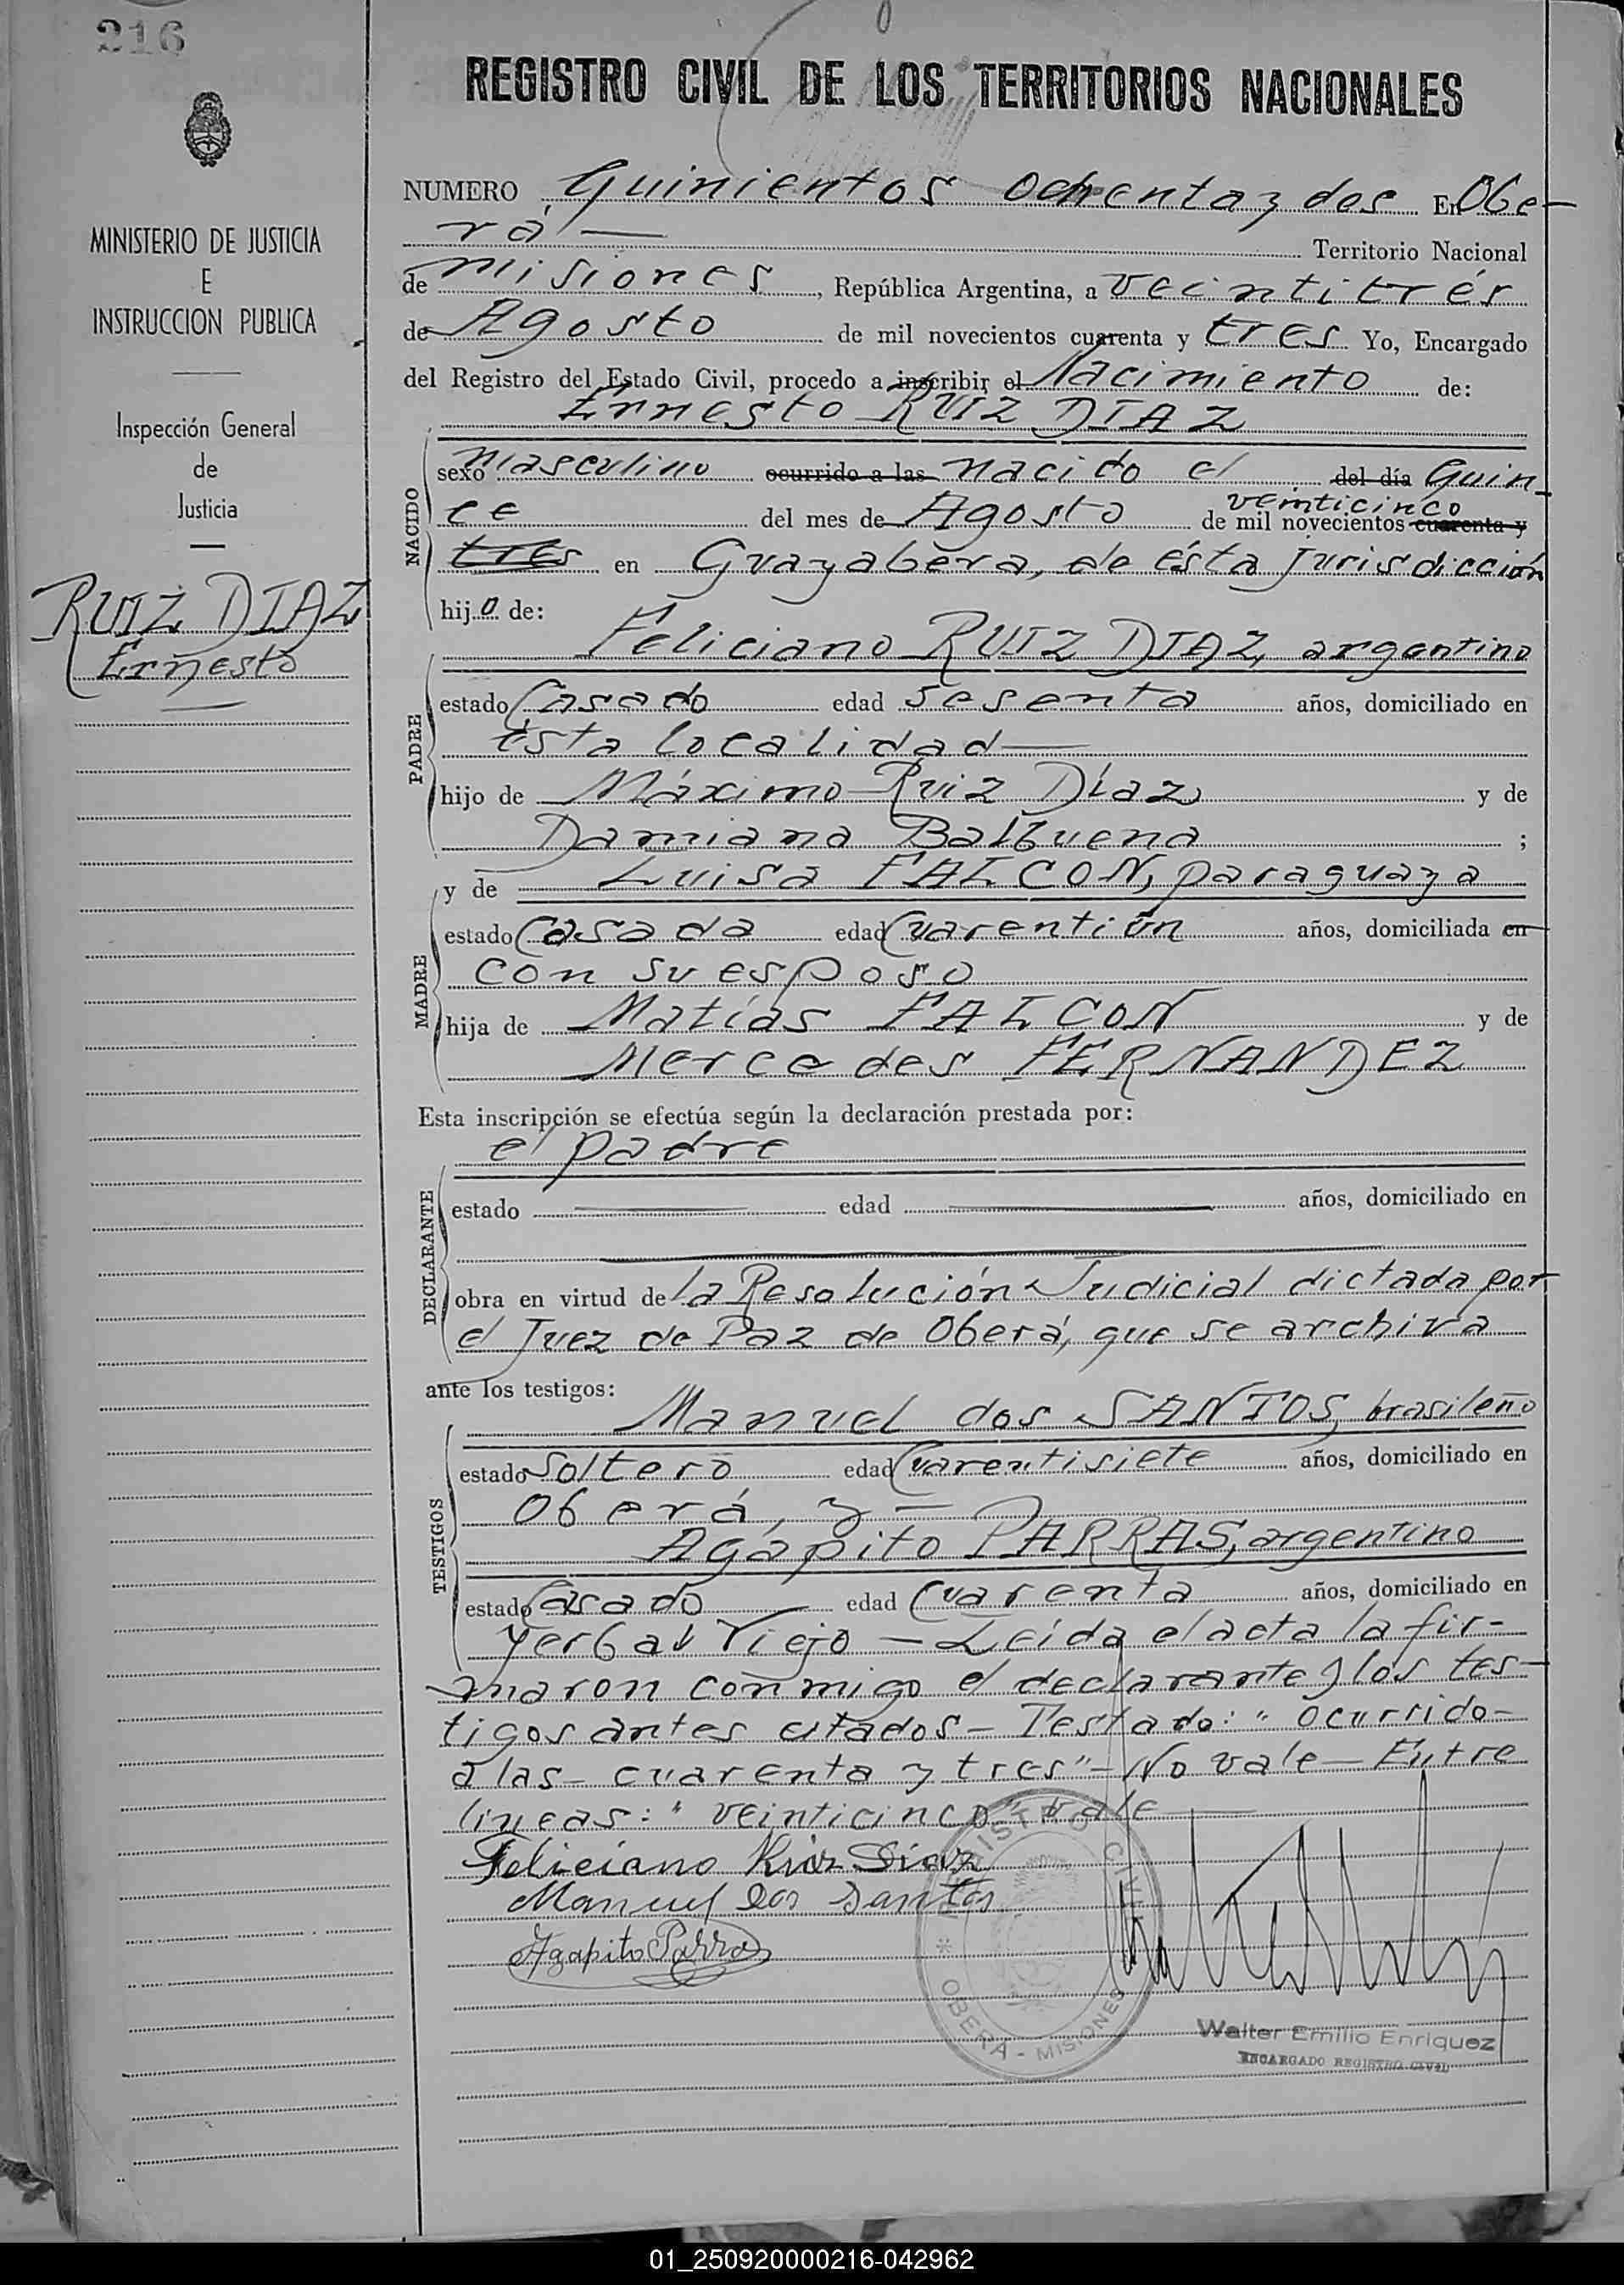 216
REGISTRO CIVIL DE LOS TERRITORIOS NACIONALES
MINISTERIO DE JUSTICIA
E
INSTRUCCION PUBLICA
Inspección General
de
Justicia
RUIZ DIAZ
Ernesto
NUMERO Quinientos ochenta y dos En Obe-
rá — Territorio Nacional
de Misiones, República Argentina, a veintitrés
de Agosto de mil novecientos cuarenta y tres Yo, Encargado
del Registro del Estado Civil, procedo a inscribir el Nacimiento de:
Ernesto RUIZ DIAZ
NACIDO
sexo masculino ocurrido a las nacido el del día Quin-
veinticinco
ce del mes de Agosto de mil novecientos cuarenta y
tres en Guayabera, de ésta Jurisdicción
hijo de:
PADRE
Feliciano RUIZ DIAZ, argentino
estado Casado edad sesenta años, domiciliado en
ésta localidad —
hijo de Máximo Ruiz Díaz y de
Damiana Balbuena ;
MADRE
y de Luisa FALCON, paraguaya
estado Casada edad Cuarentiún años, domiciliada en
con su esposo
hija de Matías FALCON y de
Mercedes FERNANDEZ
Esta inscripción se efectúa según la declaración prestada por:
DECLARANTE
el padre
estado — edad — años, domiciliado en
obra en virtud de la Resolución Judicial dictada por
el Juez de Paz de Oberá, que se archiva
ante los testigos:
TESTIGOS
Manuel dos SANTOS, brasileño
estado Soltero edad Cuarentisiete años, domiciliado en
Oberá, y —
Agapito PARRAS, argentino
estado Casado edad Cuarenta años, domiciliado en
Yerbal Viejo — Leída el acta la fir-
maron conmigo el declarante y los tes-
tigos antes citados - Testado: " ocurrido -
a las - cuarenta y tres" - No vale - Entre
líneas: " veinticinco" vale —
Feliciano Ruiz Diaz
Manuel Dos Santos
Agapito Parras
REGISTRO CIVIL
OBERA - MISIONES
Walter Emilio Enriquez
ENCARGADO REGISTRO CIVIL
01_250920000216-042962